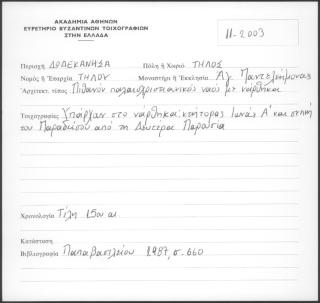 ΑΚΑΔΗΜΙΑ ΑΘΗΝΩΝ
ΕΥΡΕΤΗΡΙΟ ΒΥΖΑΝΤΙΝΩΝ ΤΟΙΧΟΓΡΑΦΙΩΝ
ΣΤΗΝ ΕΛΛΑΔΑ
11-2003
Περιοχή ΔΩΔΕΚΑΝΗΣΑ Πόλη ή Χωριό ΤΗΛΟΣ
Νομός ή Ἐπαρχία ΤΗΛΟΥ Μοναστήρι ή Ἐκκλησία Αγ. Παντελεήμονας
Ἀρχιτεκτ. τύπος Πιθανόν παλαιοχριστιανικός ναός με νάρθηκα
Τοιχογραφίες Υπάρχαν στο νάρθηκα: κτήτορας Ιωνάς Α' και σκηνή
του Παραδείσου από τη Δευτέρα Παρουσία
Χρονολογία Τέλη 15ου αι
Κατάσταση
Βιβλιογραφία Παπαβασιλείου 1987, σ. 660